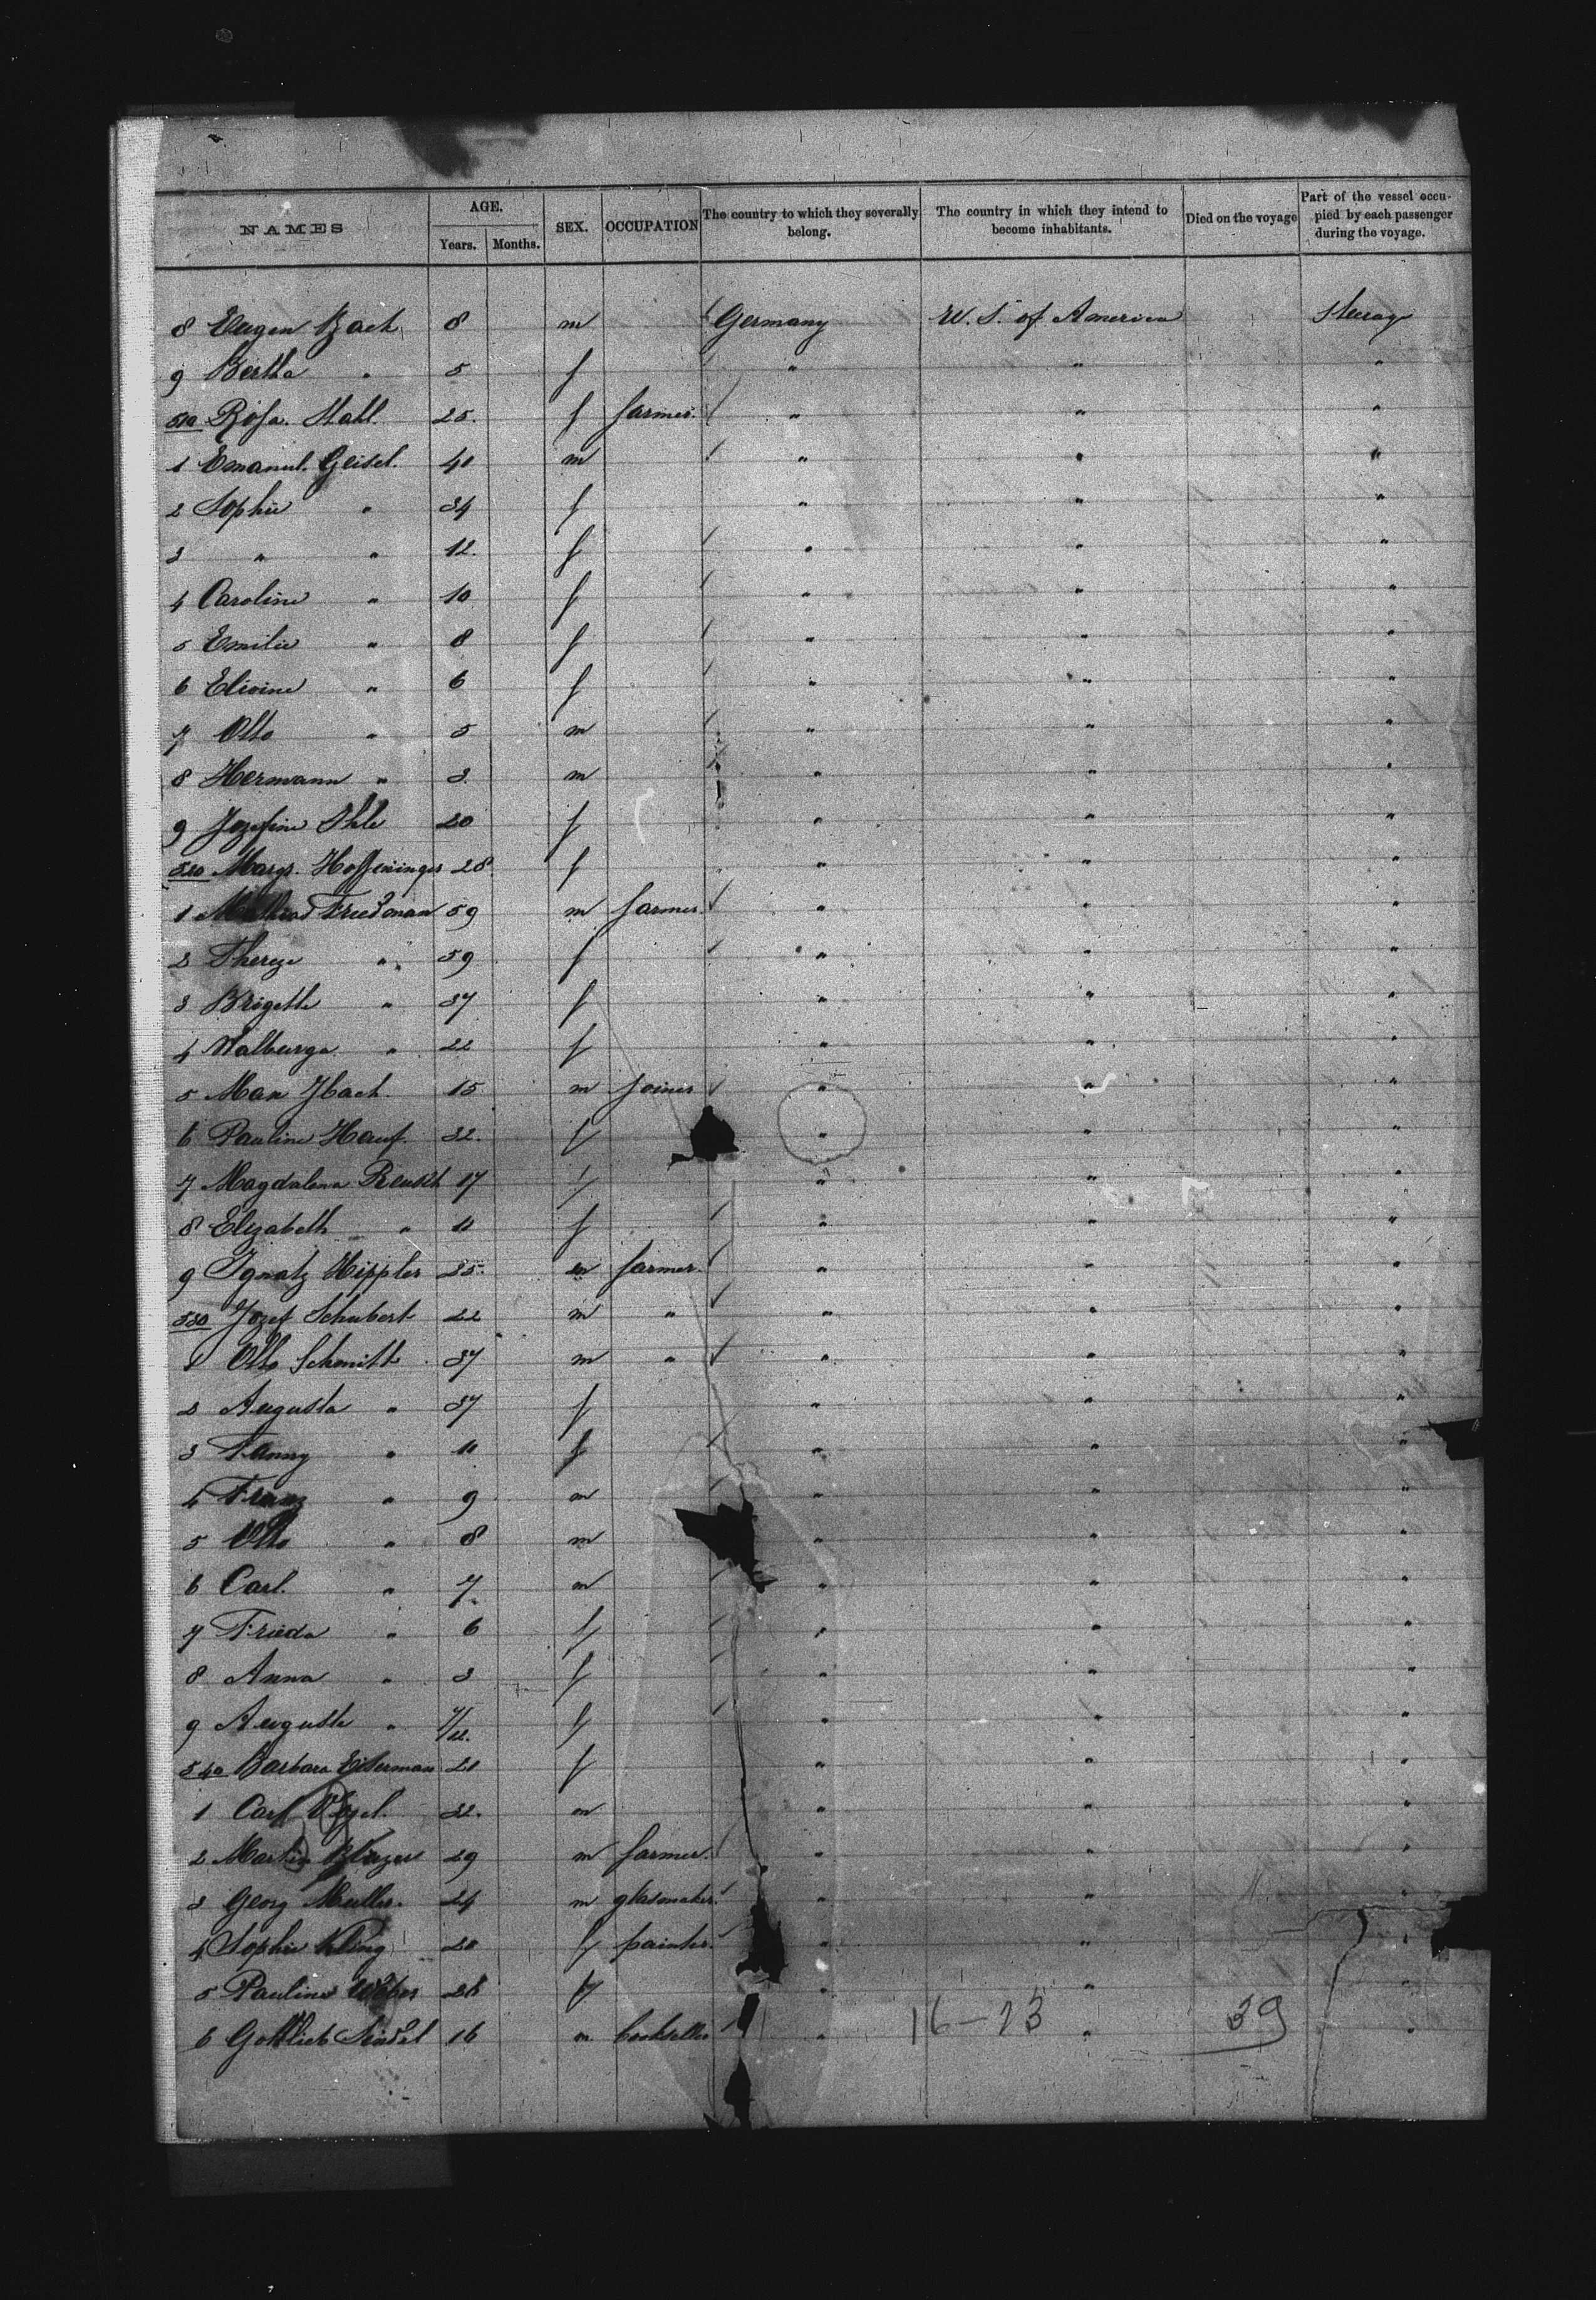 NAMES AGE. Years. Months. SEX. OCCUPATION The country to which they severally belong. The country in which they intend to become inhabitants. Died on the voyage Part of the vessel occupied by each passenger during the voyage.
8 Eugen Bach 8 m Germany U. S. of America Steerage
9 Bertha " 5 f " " "
510 Rosa Stahl 25 f farmer " " "
1 Emanul. Geisel. 40 m " " "
2 Sophie " 34 f " " "
3 " " 12 f " " "
4 Caroline " 10 f " " "
5 Emilie " 8 f " " "
6 Elivine " 6 f " " "
7 Otto " 5 m " " "
8 Hermann " 3 m " " "
9 Jozefine Ihle 20 f " " "
520 Margr. 28 f " " "
1 Friedman 59 m farmer " " "
2 Thereze " 59 f " " "
3 Brigette " 37 f " " "
4 Walburga " 22 f " " "
5 Max Ibach 15 m joiner " " "
6 Pauline Hauf. 32 f " " "
7 Magdalena 17 f " " "
8 Elizabeth " 11 f " " "
9 Ignatz Hippler 25 m farmer " " "
530 Jozef Schubert 22 m " " " "
1 Otto Schmitt 37 m " " " "
2 Augusta " 37 f " " "
3 Fanny " 11 f " " "
4 Franz " 9 m " " "
5 Otto " 8 m " " "
6 Carl. " 7 m " " "
7 Frieda " 6 f " " "
8 Anna " 3 f " " "
9 Auguste " f " " "
540 Barbara 21 f " " "
1 Carl 32 m " " "
2 Martin 29 m farmer " " "
3 Georg Muller. 24 m glasmaker " " "
4 Sophie Kling 20 f painter " " "
5 Pauline Weber f " " "
6 Gottlieb Seidel 16 m bookseller " " "
16-23 39